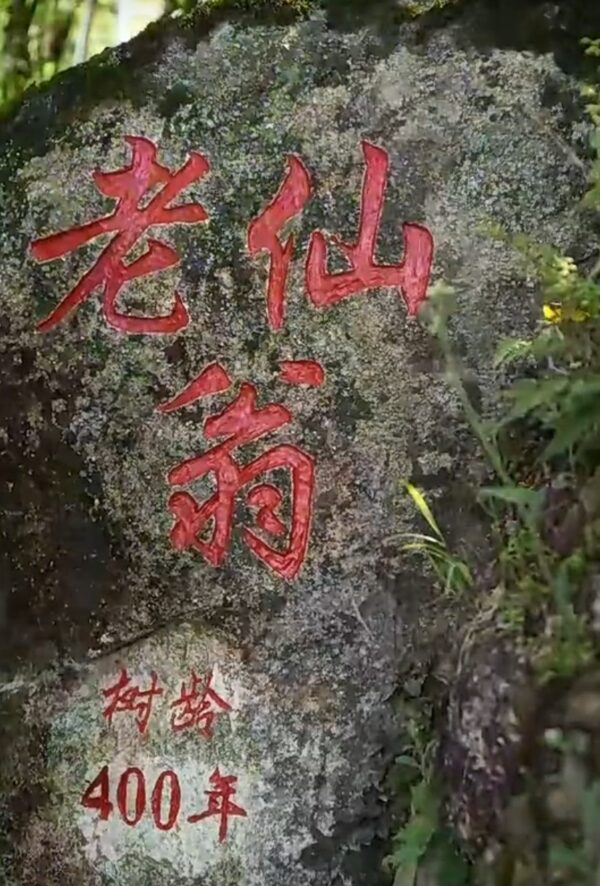 老仙
翁
树龄
400年